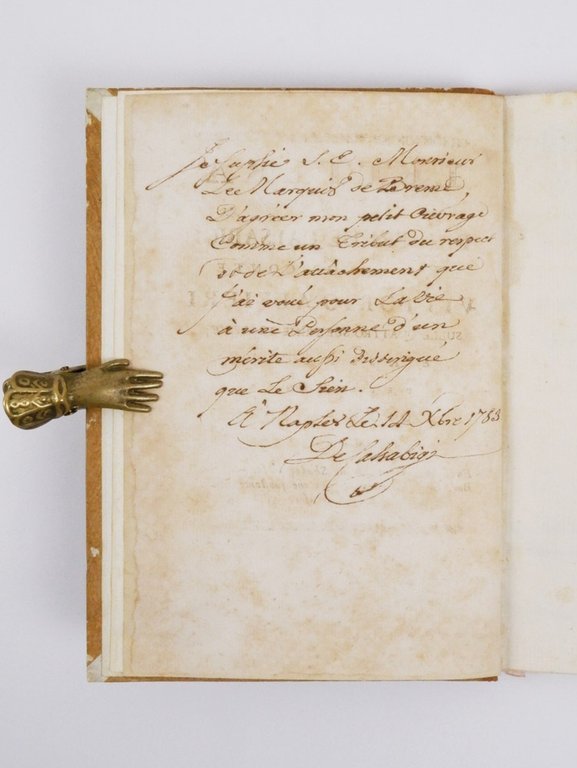 Je suplie S. E. Monsieur
Le Marquis de Breme,
D'agréer mon petit Ouvrage
Comme un Tribut du respect
et de L'attâchement que
J'ai voué pour La Vie
à une Personne d'un
mérite aussi distingué
que Le Sien.
À Naples Le 14 Xbre 1783
DeCalsabigi